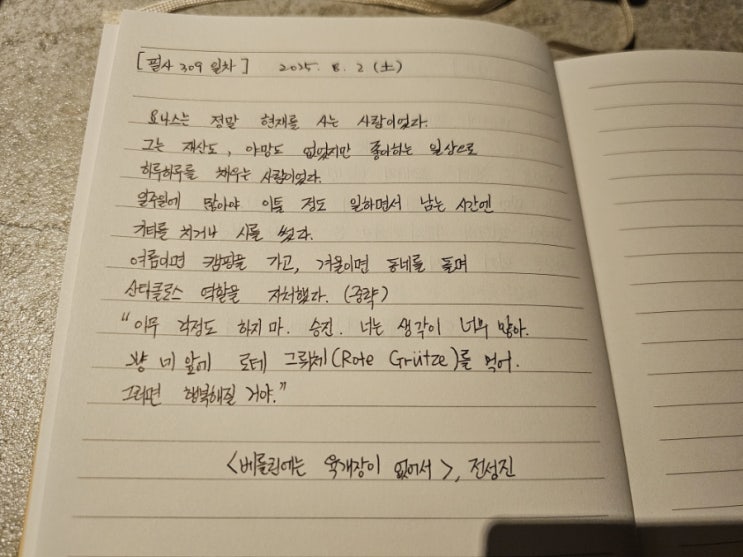 [필사 309 일차]   2025. 8. 2 (土)
요나스는 정말 현재를 사는 사람이었다.
그는 재산도, 야망도 없었지만 좋아하는 일상으로
하루하루를 채우는 사람이었다.
일주일에 많아야 이틀 정도 일하면서 남는 시간엔
기타를 치거나 시를 썼다.
여름이면 캠핑을 가고, 겨울이면 동네를 돌며
산타클로스 역할을 자처했다. (중략)
"아무 걱정도 하지 마. 승진. 너는 생각이 너무 많아.
그냥 네 앞에 로테 그뤼체(Rote Grütze)를 먹어.
그러면 행복해질 거야."
<베를린에는 육개장이 없어서>, 전성진